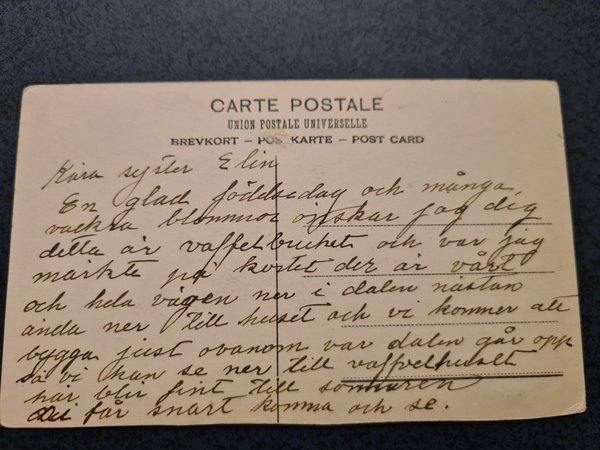 CARTE POSTALE
UNION POSTALE UNIVERSELLE
BREVKORT — POSTKARTE — POST CARD
Kära syster Elin
En glad födelsedag och många
vackra blommor önskar jag dig
detta är vaffelbruket och var jag
märkte på kortet der är vårt
och hela vägen ner i dalen nästan
ända ner till huset och vi kommer att
bygga just ovanom var dalen går opp
så vi kan se ner till vaffvelhuset
har blir fint till sommaren
du får snart komma och se.